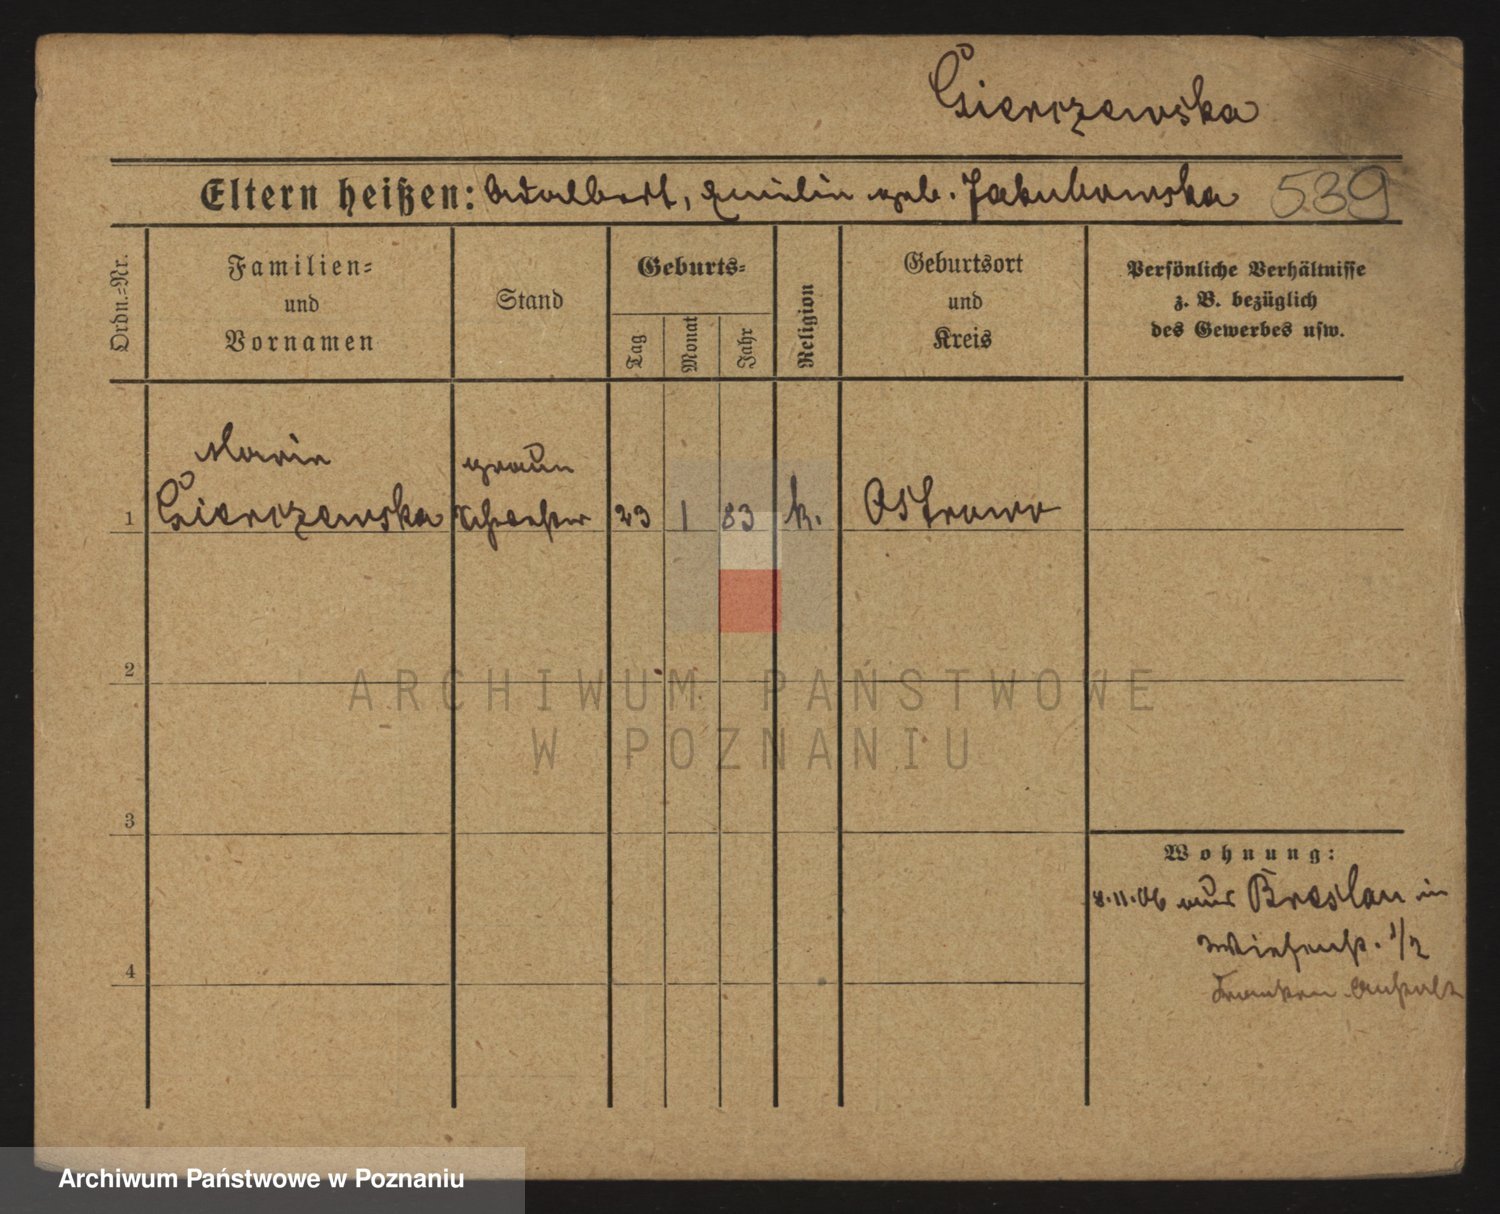 Cierczewska
Eltern heißen: Adalbert, Emilie geb. Jakubowska 539
Ordn.-Nr.
Familien-
und
Vornamen
Stand
Geburts-
Tag
Monat
Jahr
Religion
Geburtsort
und
Kreis
Persönliche Verhältnisse
z. B. bezüglich
des Gewerbes usw.
Marie graue
1 Cierczewska Schwester 23 1 83 k. Ostrowo
2
ARCHIWUM PAŃSTWOWE
W POZNANIU
3
Wohnung:
8.11.06 aus Breslau in
Wiesenst. 1/2
4 Kranken Anstalt
Archiwum Państwowe w Poznaniu